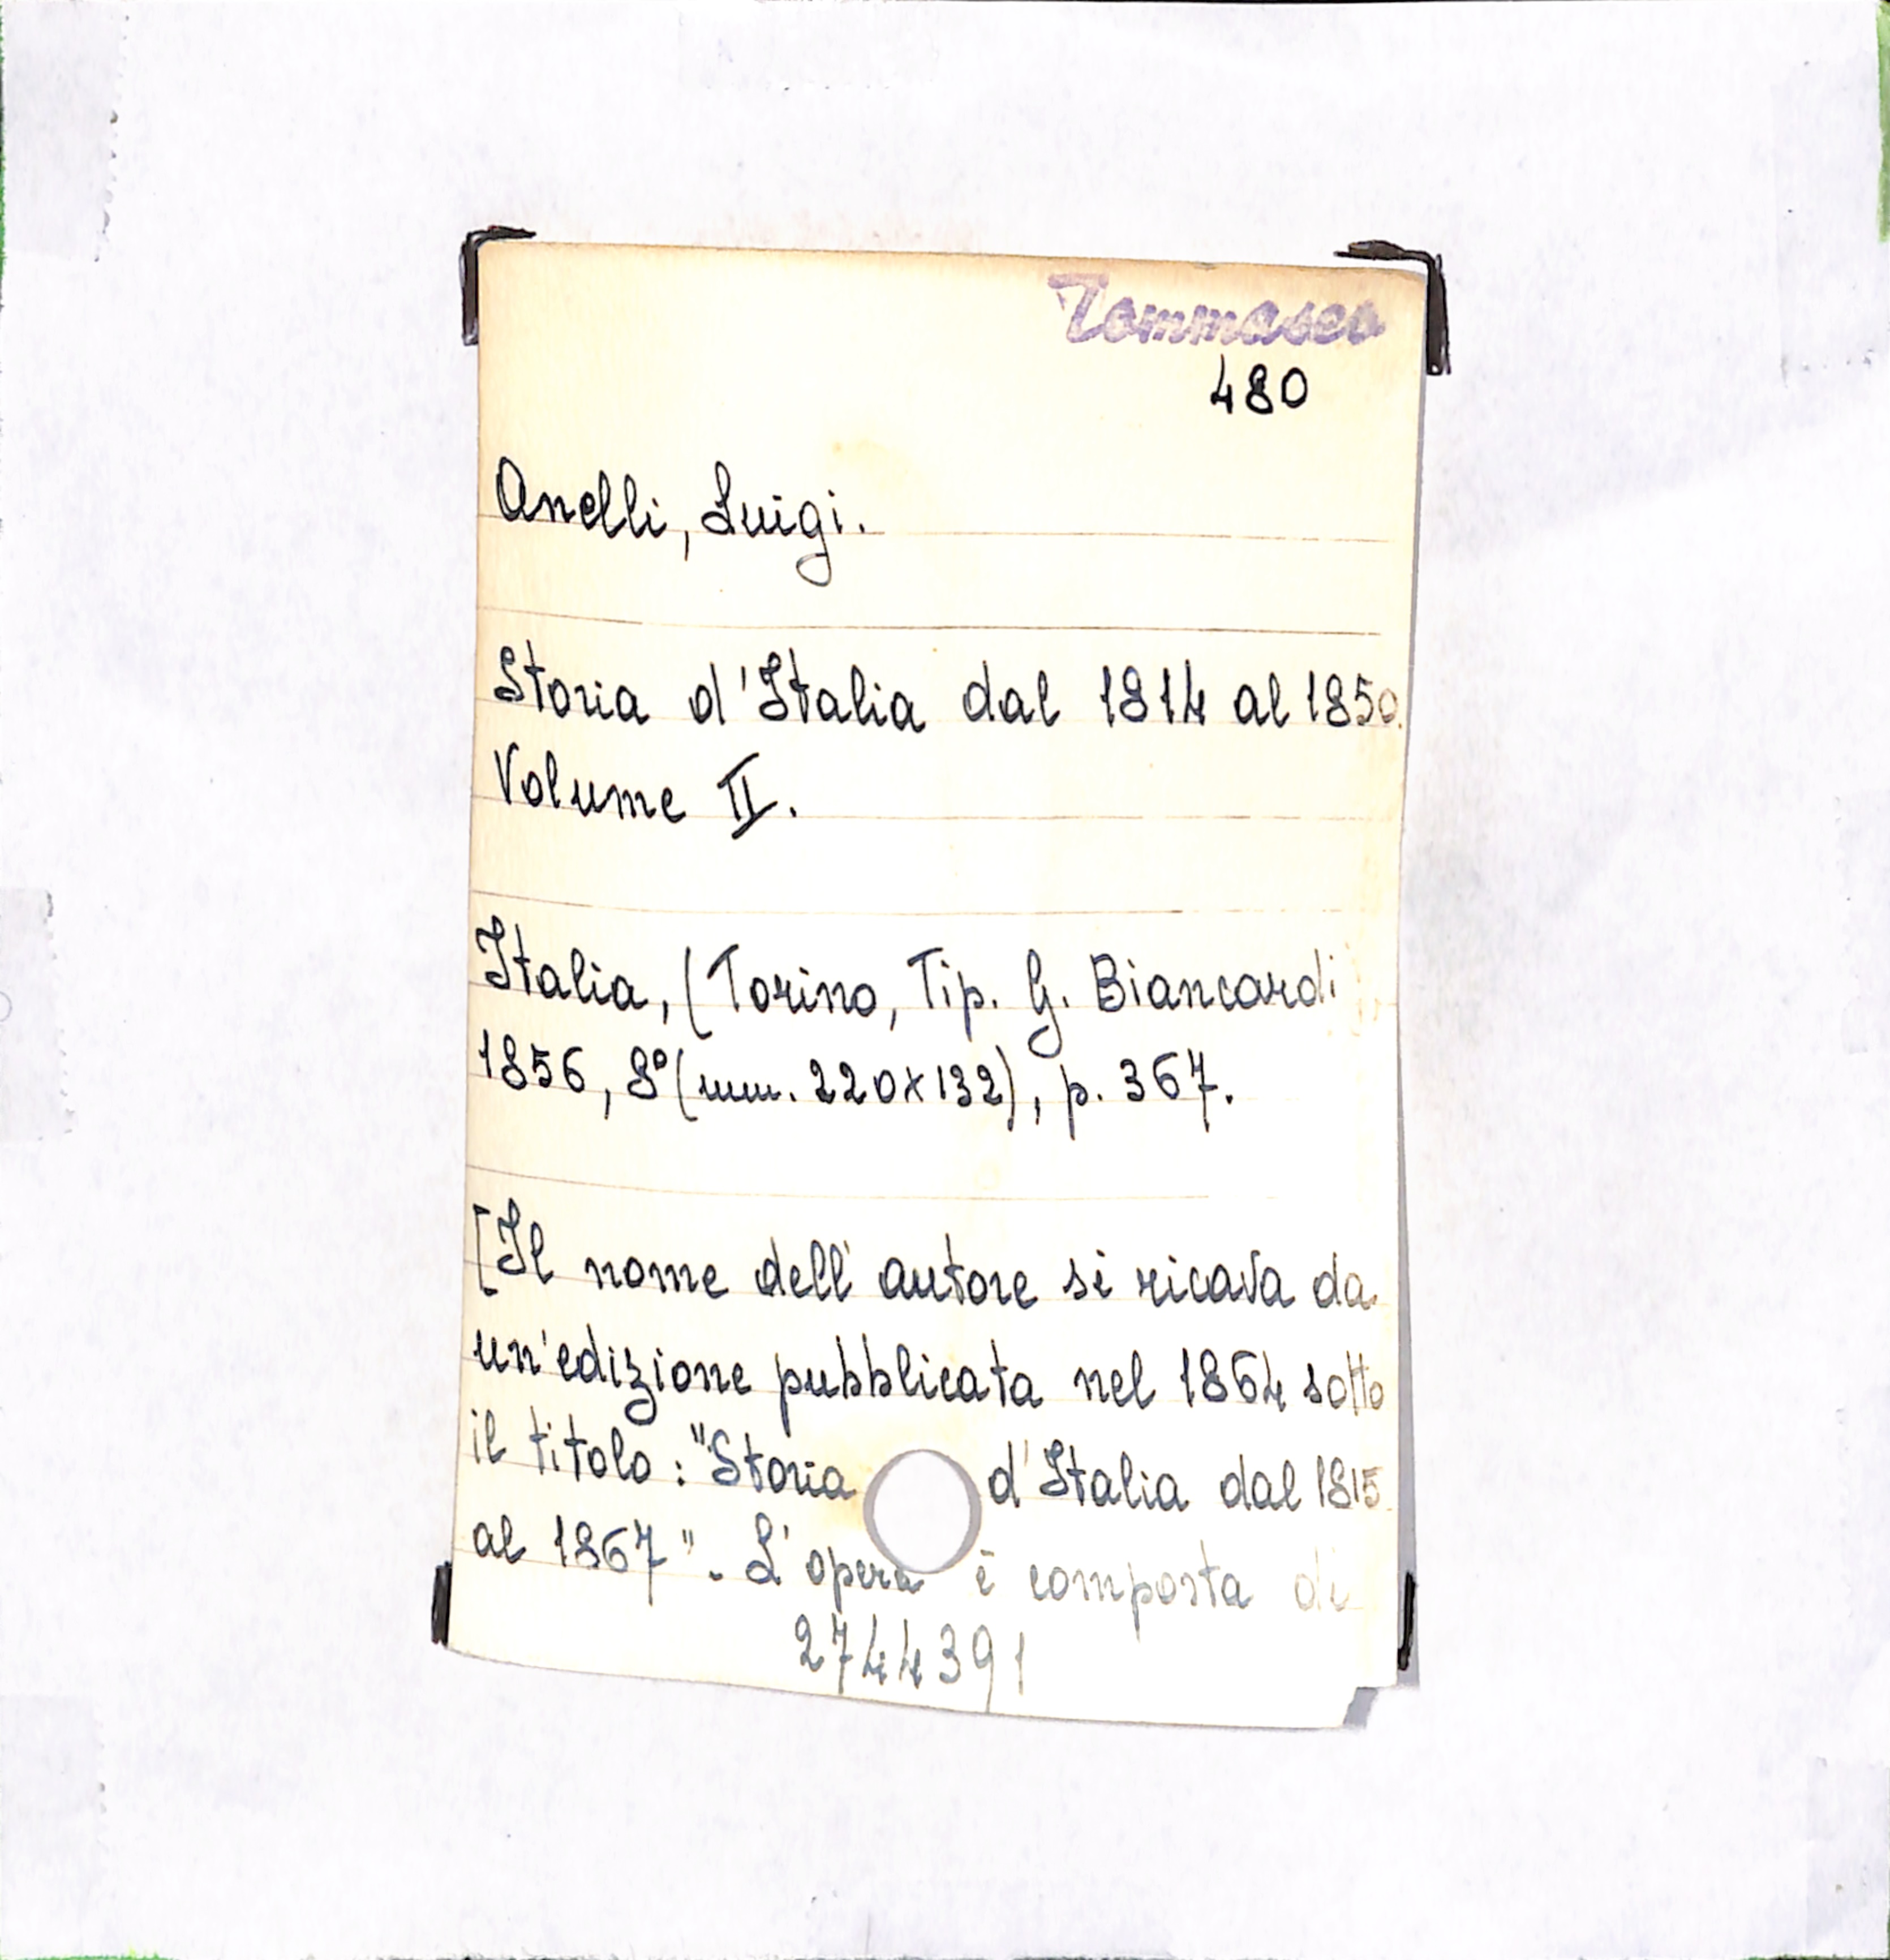 Tommaseo
480
Anelli, Luigi.
Storia d'Italia dal 1814 al 1850.
Volume II.
Italia, (Torino, Tip. G. Biancardi),
1856, 8°(mm. 220x132), p. 367.
[Il nome dell'autore si ricava da
un'edizione pubblicata nel 1864 sotto
il titolo: "Storia d'Italia dal 1815
al 1867". L'opera è composta di
2744391